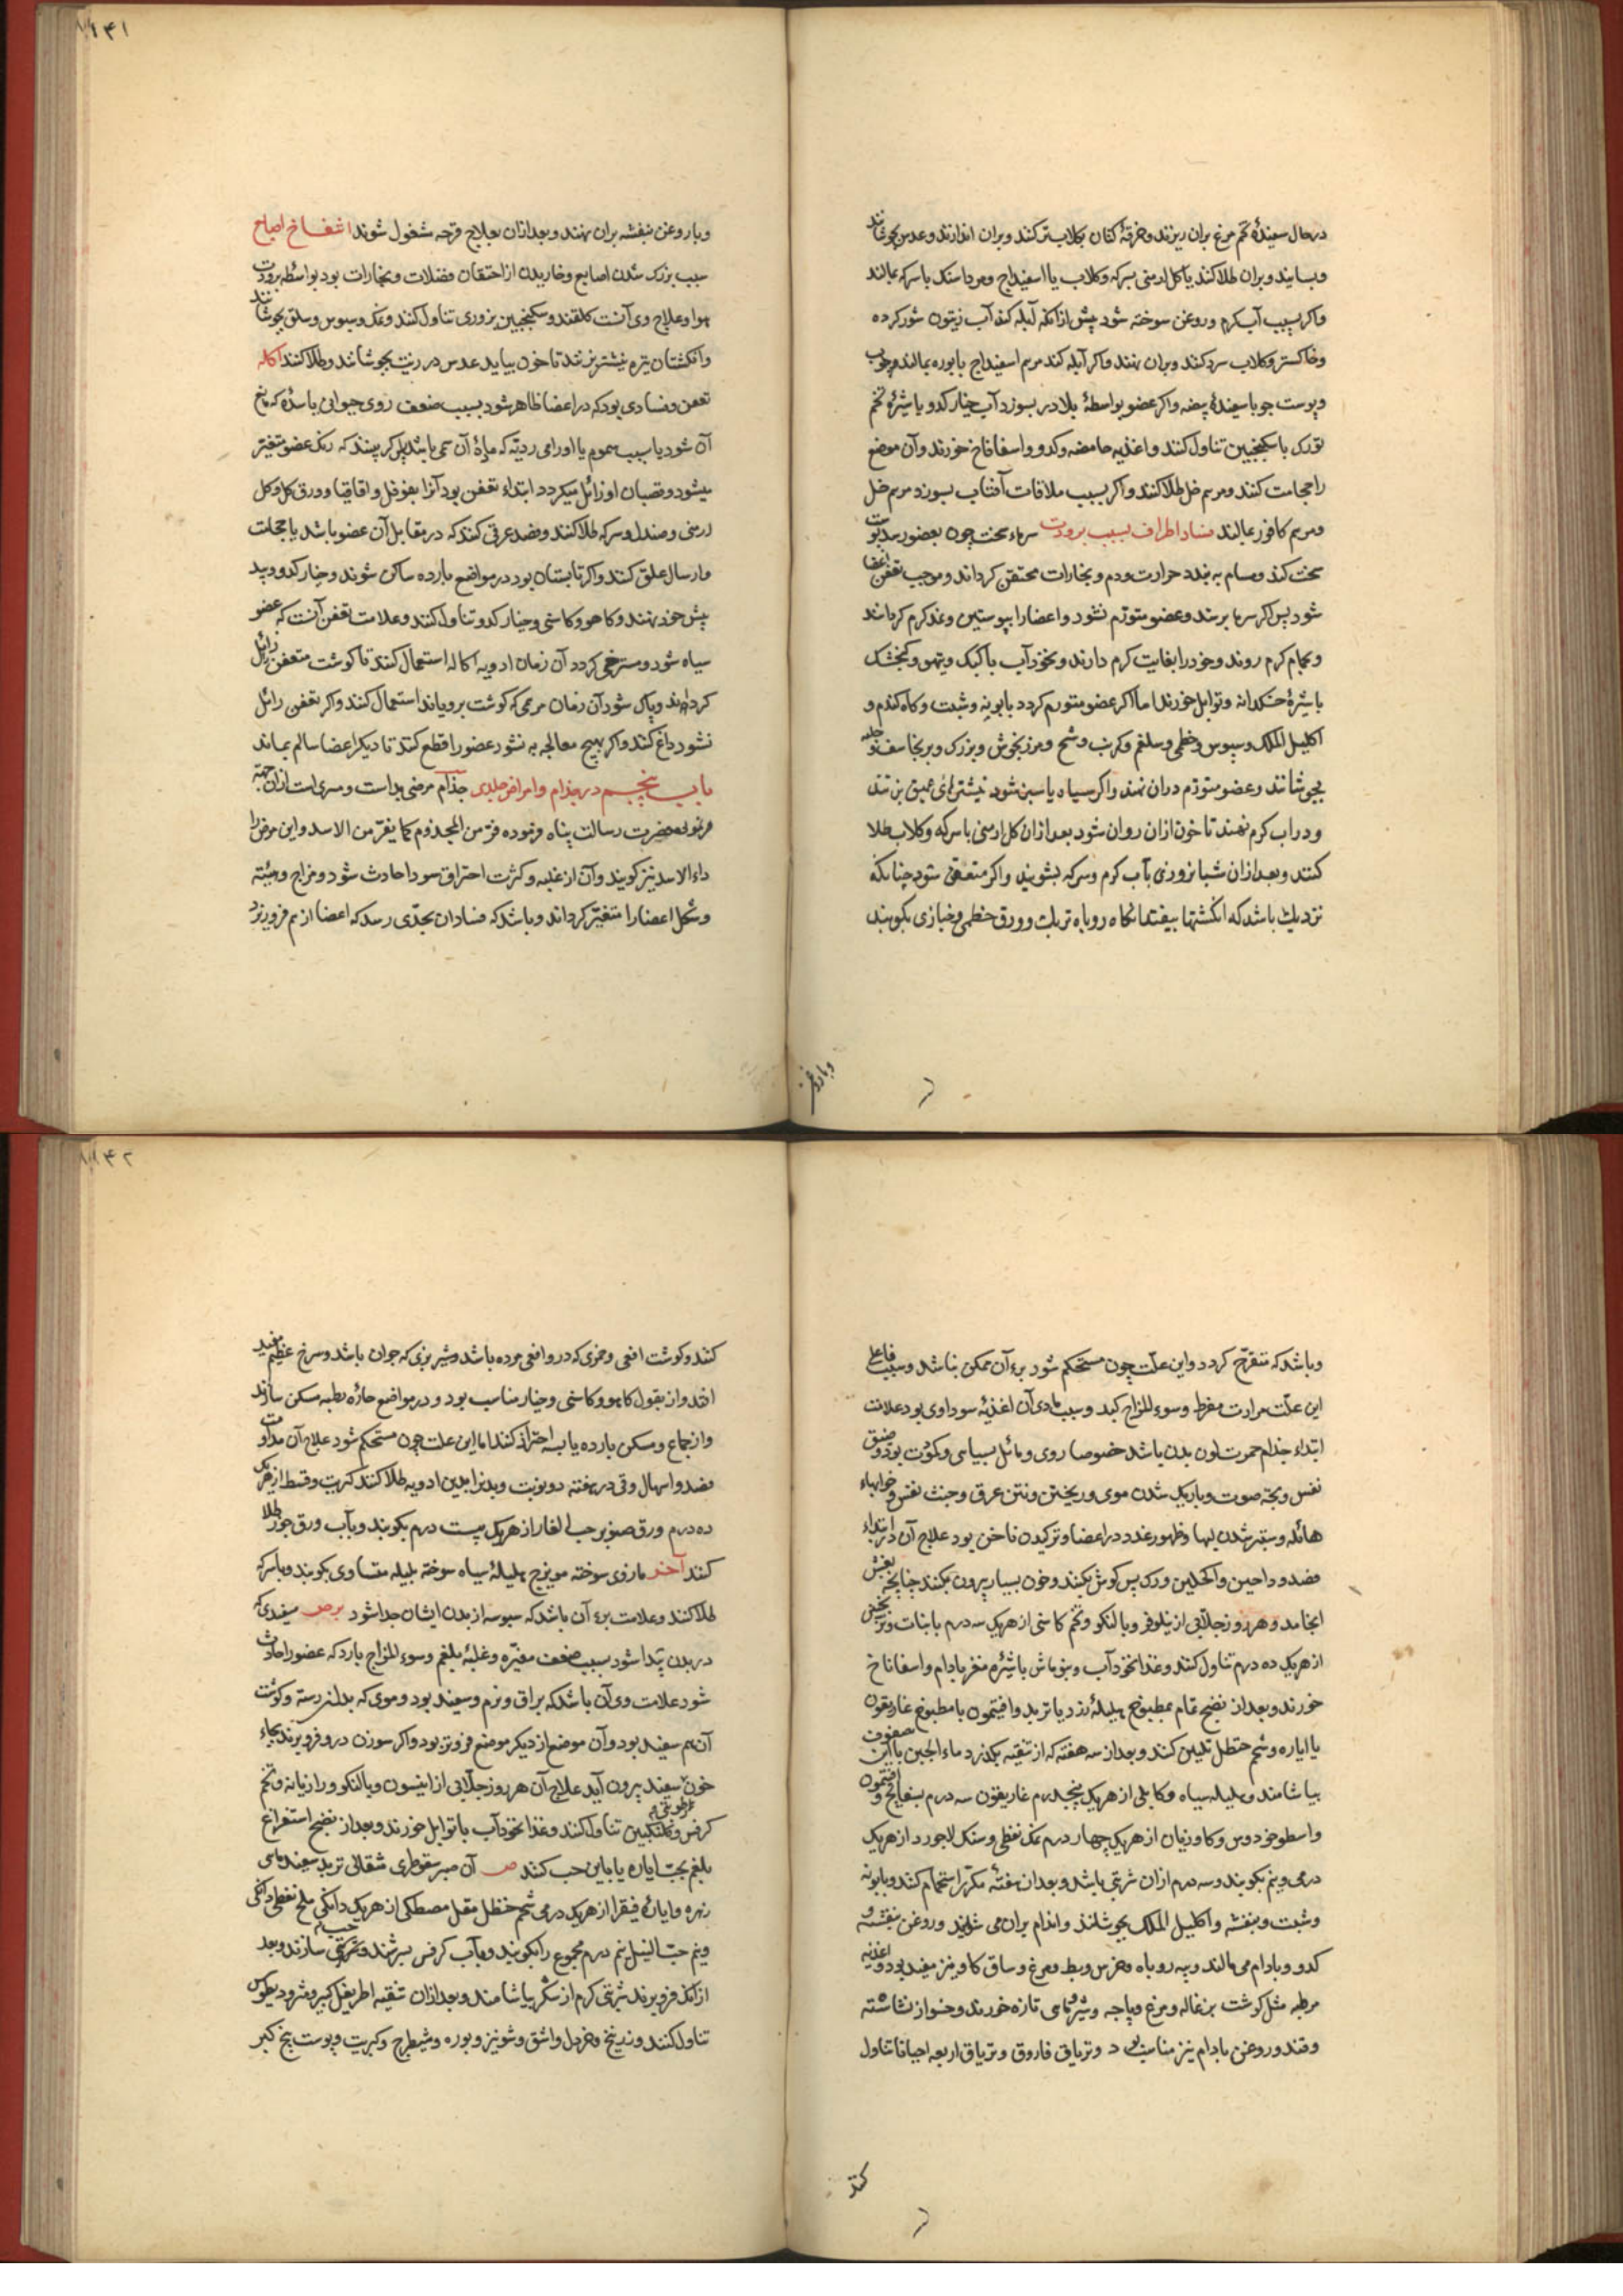 درحال سفیدهٔ تخم مرغ بران ریزند و خرقهٔ کتان بکلاب تر کنند و بران اندازند و عدس بجوشانند
و بسایند و بران طلا کنند یا کل ارمنی بسرکه و کلاب یا اسفیداج و مرداسنک با سرکه بمالند
و اکر بسبب آب کرم و روغن سوخته شود پیش از انکه آبله کند آب زیتون شور کرده
و خاکستر و کلاب سرد کنند و بران نهند و اکر آبله کند مرهم اسفیداج یا بوره بمالند
و پوست جو با سفیدهٔ بیضه و اکر عضو بواسطهٔ بلادر بسوزد آب خیار کدو یا شیرهٔ تخم
تورک با سکنجبین تناول کنند و اغذیه حامضه و کدو و اسفاناخ خورند و آن موضع
را حجامت کنند و مرهم خل طلا کنند و اکر بسبب ملاقات آفتاب بسوزد مرهم خل
و مرهم کافور بمالند فساد اطراف بسبب برودت سرماء سخت چون بعضو رسد پوست
سخت کند و مسام به بندد حرارت و دم و بخارات محتقن کرداند و موجب تعفن اعضا
شود پس اکر سرما برسد و عضو متورم نشود و اعضا را بپوستین و نمد کرم کردانند
و بحمام کرم روند و خود را بغایت کرم دارند و نخود آب با کبک و تیهو و کنجشک
با شیرهٔ خسکدانه و توابل خورند اما اکر عضو متورم کردد بابونه و شبت و کاه کندم و
اکلیل الملک و سبوس و خطمی و سلغم و کرنب و شیح و مرزنجوش و بزرک و برنجاسف و حلبه
بجوشانند و عضو متورم دران نهند و اکر سیاه یا سبز شود نیشترهای عمیق بزنند
و در آب کرم نهند تا خون ازان روان شود بعد ازان کل ارمنی با سرکه و کلاب طلا
کنند و بعد ازان شبانروزی بآب کرم و سرکه بشویند و اکر متعفن شود چنانکه
نزدیک باشد که انکشتها بیفتد انکاه روباه تربک و ورق خطمی و خبازی بکوبند
وبا روغن
۱۴۱
وبا روغن بنفشه بران نهند و بعد ازان بعلاج قرحه مشغول شوند انتفاخ اصابع
سبب بزرک شدن اصابع و خاریدن از احتقان فضلات و بخارات بود بواسطه برودت
هوا و علاج وی آنست کلقند و سکنجبین بزوری تناول کنند و نمک و سبوس و سلق بجوشانند
و انکشتان تیره نیشتر بزنند تا خون بیاید عدس در زیت بجوشانند و طلا کنند آکله
تعفن و فسادی بود که در اعضا ظاهر شود بسبب ضعف روح حیوانی یا سدهٔ که مانع
آن شود یا بسبب سموم یا اورامی ردیه که مادهٔ آن سمی باشد پس اکر بینند که رنک عضو متغیر
میشود و ضربان او زائل میکردد ابتداء تعفن بود آنرا بفوفل و اقاقیا و ورق کل و کل
ارمنی و صندل و سرکه طلا کنند و فصد عرقی کنند که در مقابل آن عضو باشد یا حجامت
و ارسال علق کنند و اکر تابستان بود در مواضع بارده ساکن شوند و خیار کدو و بید
پیش خود نهند و کاهو و کاسنی و خیار کدو تناول کنند و علامت تعفن آنست که عضو
سیاه شود و مسترخی کردد آن زمان ادویه اکاله استعمال کنند تا کوشت متعفن زائل
کرداند و پاک شود آن زمان مرهمی که کوشت برویاند استعمال کنند و اکر تعفن زائل
نشود داغ کنند و اکر بهیچ معالجه به نشود عضو را قطع کنند تا دیکر اعضا سالم بماند
باب پنجم در جذام و امراض جلدی جذام مرضی بد است و مسری است ازان جهته
حضرت رسالت پناه فرموده فر من المجذوم کما یفر من الاسد و این مرض را
داء الاسد نیز کویند و آن از غلبه و کثرت احتراق سودا حادث شود و مزاج و هیئته
و شکل اعضا را متغیر کرداند و باشد که فساد ان بحدی رسد که اعضا از هم فرو ریزد
و باشد که متقرح کردد و این علت چون مستحکم شود برء آن ممکن نباشد و سبب فاعلی
این علت حرارت مفرط و سوء المزاج کبد و سبب مادی آن اغذیهٔ سوداوی بود علامت
ابتداء جذام حمرت لون بدن باشد خصوصا روی و مائل بسیاهی و کمودت بود و ضیق
نفس و بحه صوت و باریک شدن موی و ریختن و نتن عرق و خبث نفس و خوابهاء
هائله و ستبر شدن لبها و ظهور غدد در اعضا و ترکیدن ناخن بود علاج آن در ابتداء
فصد وداجین و اکحلین و رک پس کوش بکنند و خون بسیار بیرون بکنند چنانچه بغشی
انجامد و هر روز جلابی از نیلوفر و بالنکو و تخم کاسنی از هر یک سه درم با نبات و ترنجبین
از هر یک ده درم تناول کنند و غذا نخود آب و بنوماش با شیرهٔ مغز بادام و اسفاناخ
خورند و بعد از نضج تمام بمطبوخ هلیلهٔ زرد یا تربد و افیتمون یا مطبوخ غاریقون
یا ایاره و شحم حنظل تلیین کنند و بعد از سه هفته که از تنقیه بکذرد ماء الجبن با این سفوف
بیاشامند هلیله سیاه و کابلی از هر یک پنجدرم غاریقون سه درم بسفایج و افتیمون
و اسطوخودوس و کاوزبان از هر یک چهار درم نمک نفطی و سنک لاجورد از هر یک
درمی و نیم بکوبند و سه درم ازان شربتی باشد و بعد از هفتهٔ مکرر استحمام کنند و بابونه
و شبت و بنفشه و اکلیل الملک بجوشانند و اندام بران می شویند و روغن بنفشه و
کدو و بادام می مالند و پیه روباه و خرس و بط و مرغ و ساق کاو نیز مفید بود و اغذیه
مرطبه مثل کوشت بزغاله و مرغ و پاچه و شیرهای تازه خورند و حسو از نشاسته
و قند و روغن بادام نیز مناسب بود و تریاق فاروق و تریاق اربعه احیانا تناول
کنند
۱۴۲
کنند و کوشت افعی و خمری که در و افعی مرده باشد و شیر بزی که جوان باشد و سرخ عظیم مفید
افتد و از بقول کاهو و کاسنی و خیار مناسب بود و در مواضع حاره رطبه مسکن سازند
و از جماع و مسکن بارده یابسه احتراز کنند اما این علت چون مستحکم شود علاج آن مداومت
فصد و اسهال و قی در هفته دو نوبت و بدنرا بدین ادویه طلا کنند کبریت و قسط از هر یک
ده درم ورق صنوبر حب الغار از هر یک بیست درم بکوبند و بآب ورق جوز طلا
کنند آخر مازوی سوخته مویزج هلیلهٔ سیاه سوخته بلیله متساوی بکوبند و با سرکه
طلا کنند و علامت برء آن باشد که سبوسه از بدن ایشان جدا شود برص سفیدی که
در بدن پیدا شود بسبب ضعف مغیره و غلبهٔ بلغم و سوء المزاج بارد که عضو را حادث
شود علامت وی آن باشد که براق و نرم و سفید بود و موی که بدان رسته و کوشت
آن هم سفید بود و آن موضع از دیکر موضع فروتر بود و اکر سوزن درو فرو برند بجاء
خون سفید بیرون آید علاج آن هر روز جلابی از انیسون و بالنکو و رازیانه و تخم
کرفس و کلنکبین تناول کنند و غذا نخود آب با توابل خورند و بعد از نضج استفراغ
بلغم بحب ایاره یا باین حب کنند ص آن صبر سقوطری شقاقل تربد سفید
زهره و ایارهٔ فیقرا از هر یک درمی شحم حنظل مقل مصطکی از هر یک دانکی ملح نفطی دانکی
و نیم حب النیل نیم درم مجموع را بکوبند و بآب کرفس بسرشند و حب سازند و بعد
از انک فرو برند شربتی کرم از شکر بیاشامند و بعد ازان تنقیه اطریفل کبیر و مثرودیطوس
تناول کنند و زرنیخ و خردل و اشق و شونیز و بوره و شیطرج و کبریت و پوست بیخ کبر